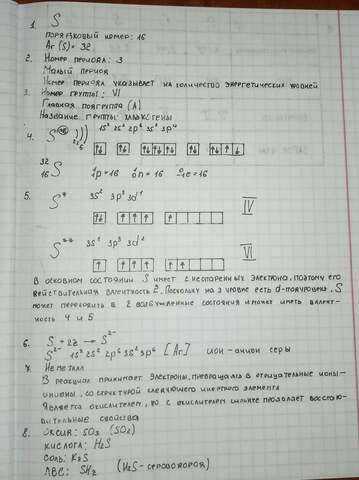 1. S
порядковый номер: 16
Ar (S) = 32
2. Номер периода: 3
Малый период
Номер периода указывает на количество энергетических уровней
3. Номер группы: VI
Главная подгруппа (A)
Название группы: Халькогены
4. S +16 ))) 1s² 2s² 2p⁶ 3s² 3p⁴
2 8 6
32
16 S ¹₁p = 16 ¹₀n = 16 ⁰₋₁e = 16
5. S* 3s² 3p³ 3d¹ IV
S** 3s¹ 3p³ 3d² VI
В основном состоянии S имеет 2 неспаренных электрона, поэтому его
валентность 2. Поскольку на 3 уровне есть d-подуровень, S
может переходить в 2 возбуждённые состояния и может иметь валент-
ность 4 и
6. S + 2ē → S²⁻
S²⁻ 1s² 2s² 2p⁶ 3s² 3p⁶ [Ar] ион-анион серы
7. Не металл
В реакциях принимает электроны, превращаясь в отрицательные ионы-
со структурой следующего инертного элемента
Является окислителем, но с окислителем сильнее проявляет восстано-
вительные свойства
8. Оксид: SO₃ (SO₂)
кислота: H₂S
соль: K₂S
ЛВС: SH₂ (H₂S - сероводород)